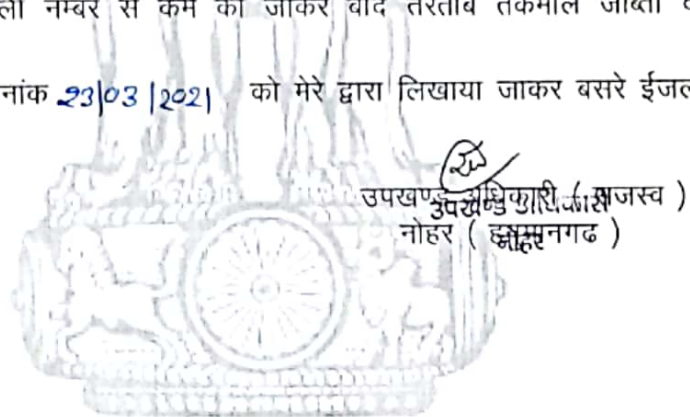 ला नम्बर से कम की जाकर बाद तरतीब तकमील जाब्ता
नांक 23/03/2021 को मेरे द्वारा लिखाया जाकर बसरे ईजल
उपखण्ड अधिकारी ( राजस्व )
उपखण्ड अधिकारी
नोहर ( हनुमानगढ )
नोहर